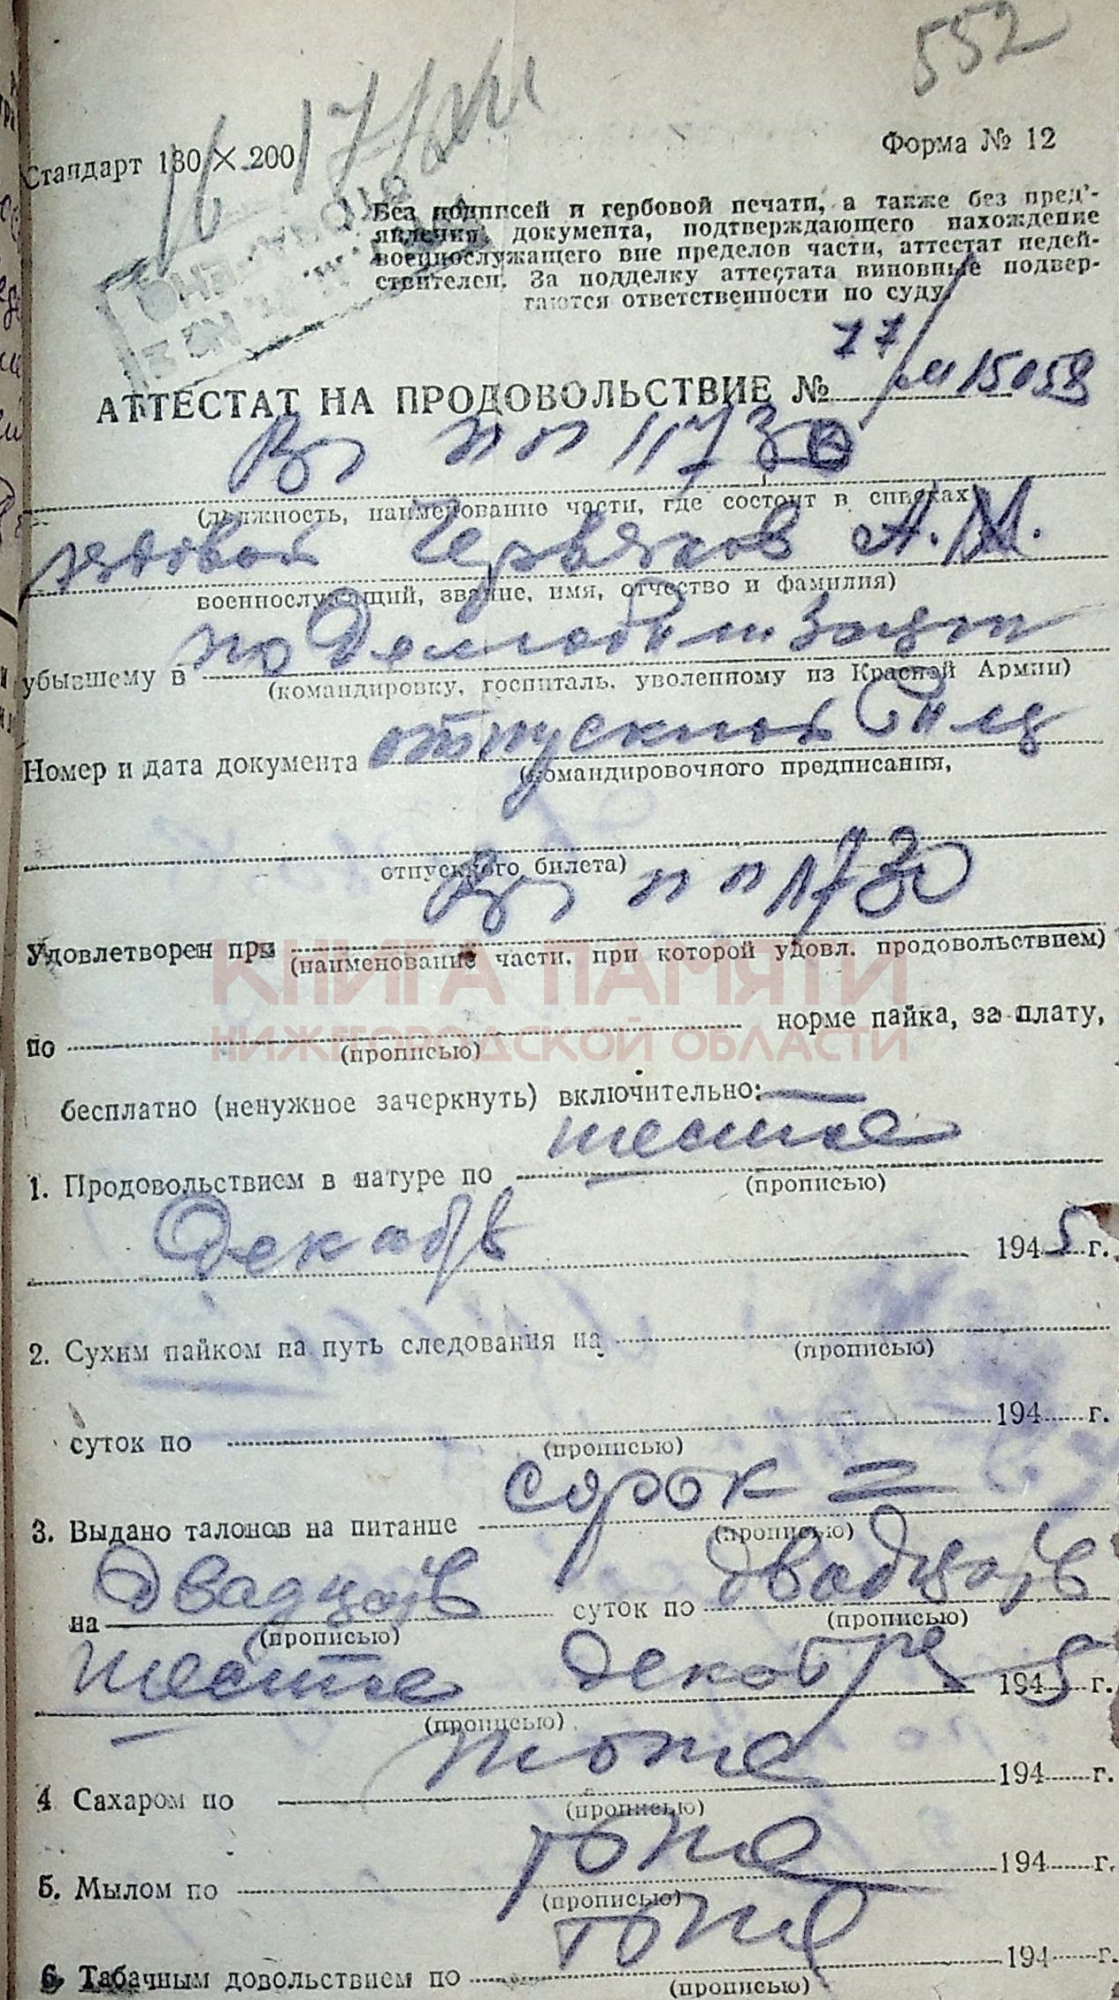 552
Стандарт 130 × 200
Форма № 12
Без подписей и гербовой печати, а также без пред'-
явления документа, подтверждающего нахождение
военнослужащего вне пределов части, аттестат недей-
ствителен. За подделку аттестата виновные подвер-
гаются ответственности по суду.
АТТЕСТАТ НА ПРОДОВОЛЬСТВИЕ № 77/м 15058
Вч пп 11730
(должность, наименование части, где состоит в списках)
рядовой Червяков А. М.
военнослужащий, звание, имя, отчество и фамилия)
убывшему в по Демобилизации
(командировку, госпиталь, уволенному из Красной Армии)
Номер и дата документа отпускной билет
(командировочного предписания,
отпускного билета)
Вч пп 11730
Удовлетворен при
(наименование части, при которой удовл. продовольствием)
КНИГА ПАМЯТИ
НИЖЕГОРОДСКОЙ ОБЛАСТИ
по норме пайка, за плату,
(прописью)
бесплатно (ненужное зачеркнуть) включительно:
1. Продовольствием в натуре по шестое
(прописью)
Декабр 1945 г.
2. Сухим пайком на путь следования на
(прописью)
суток по 194 г.
(прописью)
3. Выдано талонов на питание сорок =
(прописью)
на двадцать суток по двадцать
(прописью) (прописью)
шестое декабря 1945 г.
(прописью)
4 Сахаром по тоже 194 г.
(прописью)
5. Мылом по тоже 194 г.
(прописью)
6. Табачным довольствием по тоже 194 г.
(прописью)